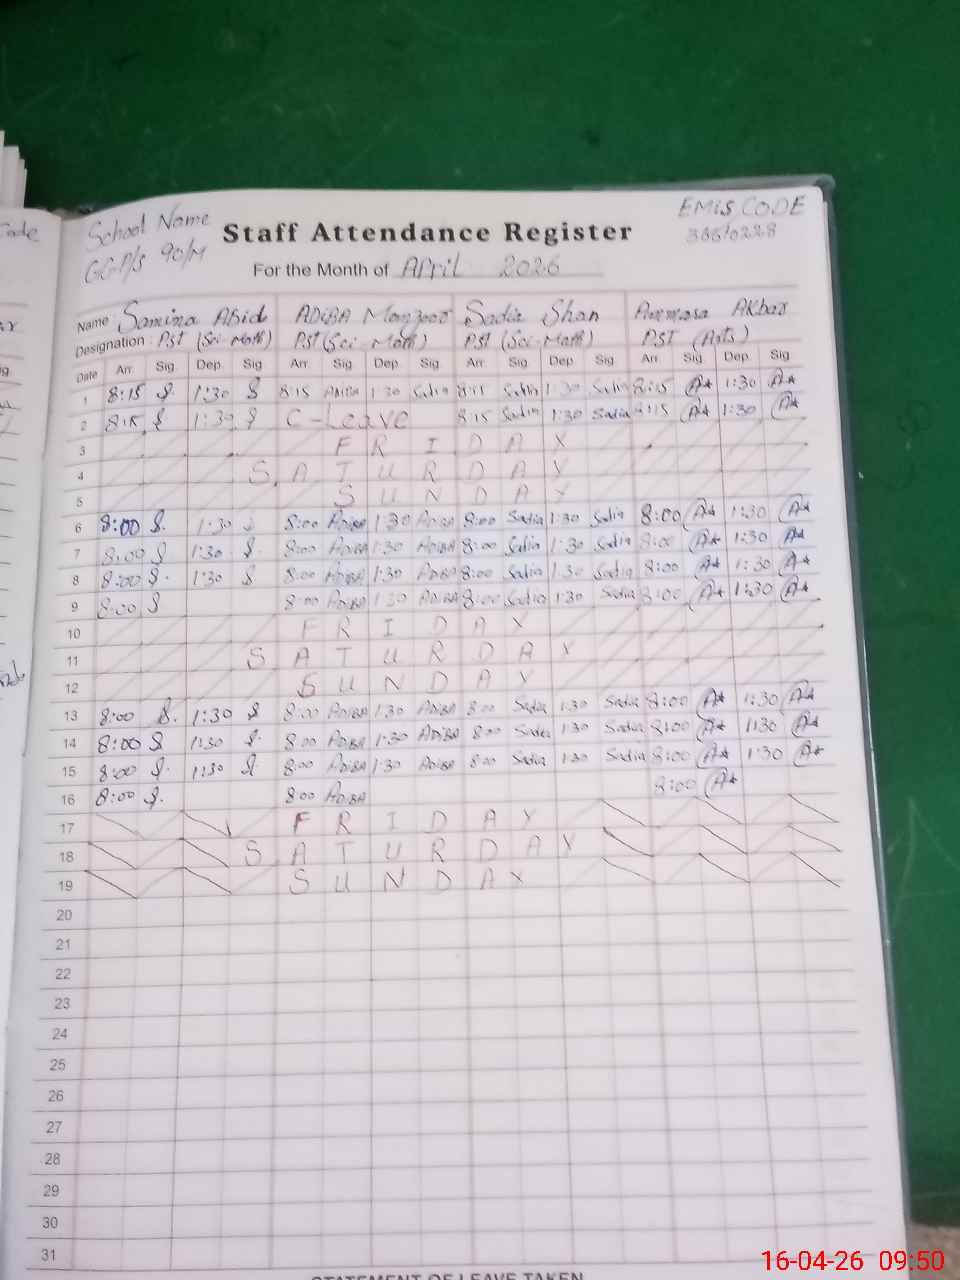 Code
School Name
GGP/S 90/M
Staff Attendance Register
EMIS CODE
For the Month of April 2026
Name : Samina Abid ADIBA Manzoor Sadia Shan Akbar
Designation : PST (Sci-Math) PST (Sci-Math) PST (Sci-Math) PST (Arts)
Date Arr. Sig. Dep. Sig Arr. Sig Dep. Sig Arr. Sig. Dep. Sig. Arr. Sig Dep. Sig
1 8:15 S. 1:30 S 8:15 Adiba 1:30 Sadia 1:30 Sadia 8:15 1:30
2 8:15 S 1:30 S C-Leave 8:15 Sadia 1:30 Sadia 8:15 1:30
3 FRIDAY
4 SATURDAY
5 SUNDAY
6 8:00 S. 1:30 S 8:00 ADIBA 1:30 ADIBA 8:00 Sadia 1:30 Sadia 8:00 1:30
7 8:00 S 1:30 S. 8:00 ADIBA 1:30 ADIBA 8:00 Sadia 1:30 Sadia 8:00 1:30
8 8:00 S. 1:30 S 8:00 ADIBA 1:30 ADIBA 8:00 Sadia 1:30 Sadia 8:00 1:30
9 8:00 S 8:00 ADIBA 1:30 ADIBA 8:00 Sadia 1:30 Sadia 8:00 1:30
10 FRIDAY
11 SATURDAY
12 SUNDAY
13 8:00 S. 1:30 S 8:00 ADIBA 1:30 ADIBA 8:00 Sadia 1:30 Sadia 8:00 1:30
14 8:00 S 1:30 S. 8:00 ADIBA 1:30 ADIBA 8:00 Sadia 1:30 Sadia 8:00 1:30
15 8:00 S. 1:30 S 8:00 ADIBA 1:30 ADIBA 8:00 Sadia 1:30 Sadia 8:00 1:30
16 8:00 S. 8:00 ADIBA 8:00
17 FRIDAY
18 SATURDAY
19 SUNDAY
20
21
22
23
24
25
26
27
28
29
30
31
STATEMENT OF LEAVE TAKEN
16-04-26 09:50